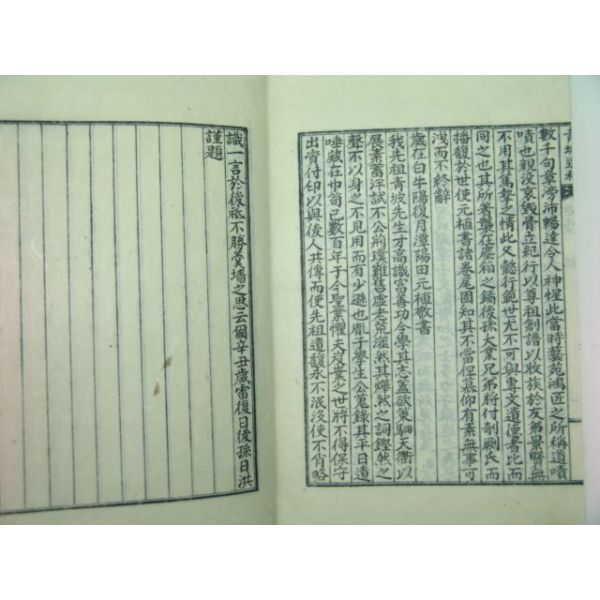 青坡遺稿
數千句章滂沛暢達令人神惺此當時藝苑鴻匠之所稱道嘖
嘖也親沒哀毀骨立純行以尊祖創譜以收族於友弟景賢無
不用其篤摯之情此又懿行範世尤不可與專文遺德者比而
同之也其所著盡在塵箱之鐍後孫大業兄弟將付剞劂氏而
播馥於世使元植書諸卷尾固知其不當但慕仰有素無事可
洩而不終辭
歲在白牛陽復月潭陽田元植敬書
我先祖青坡先生才高識富善功令學其志蓋欲策駟天衢以
展素蓄泮試不公荊璞難售虛老荒濱然其燁然之詞鏗然之
聲不以身之不見用而有少遜也胤子學生公蒐錄其平日遺
唾藏在巾笥已數百年于今聖業懼夫歿棄少世將不得保守
出實付印以與後人共傳而使先祖遺馥永不泯沒使不肖略
識一言於後裔不勝羹墻之思云爾辛丑歲雷復日後孫日洪
謹題